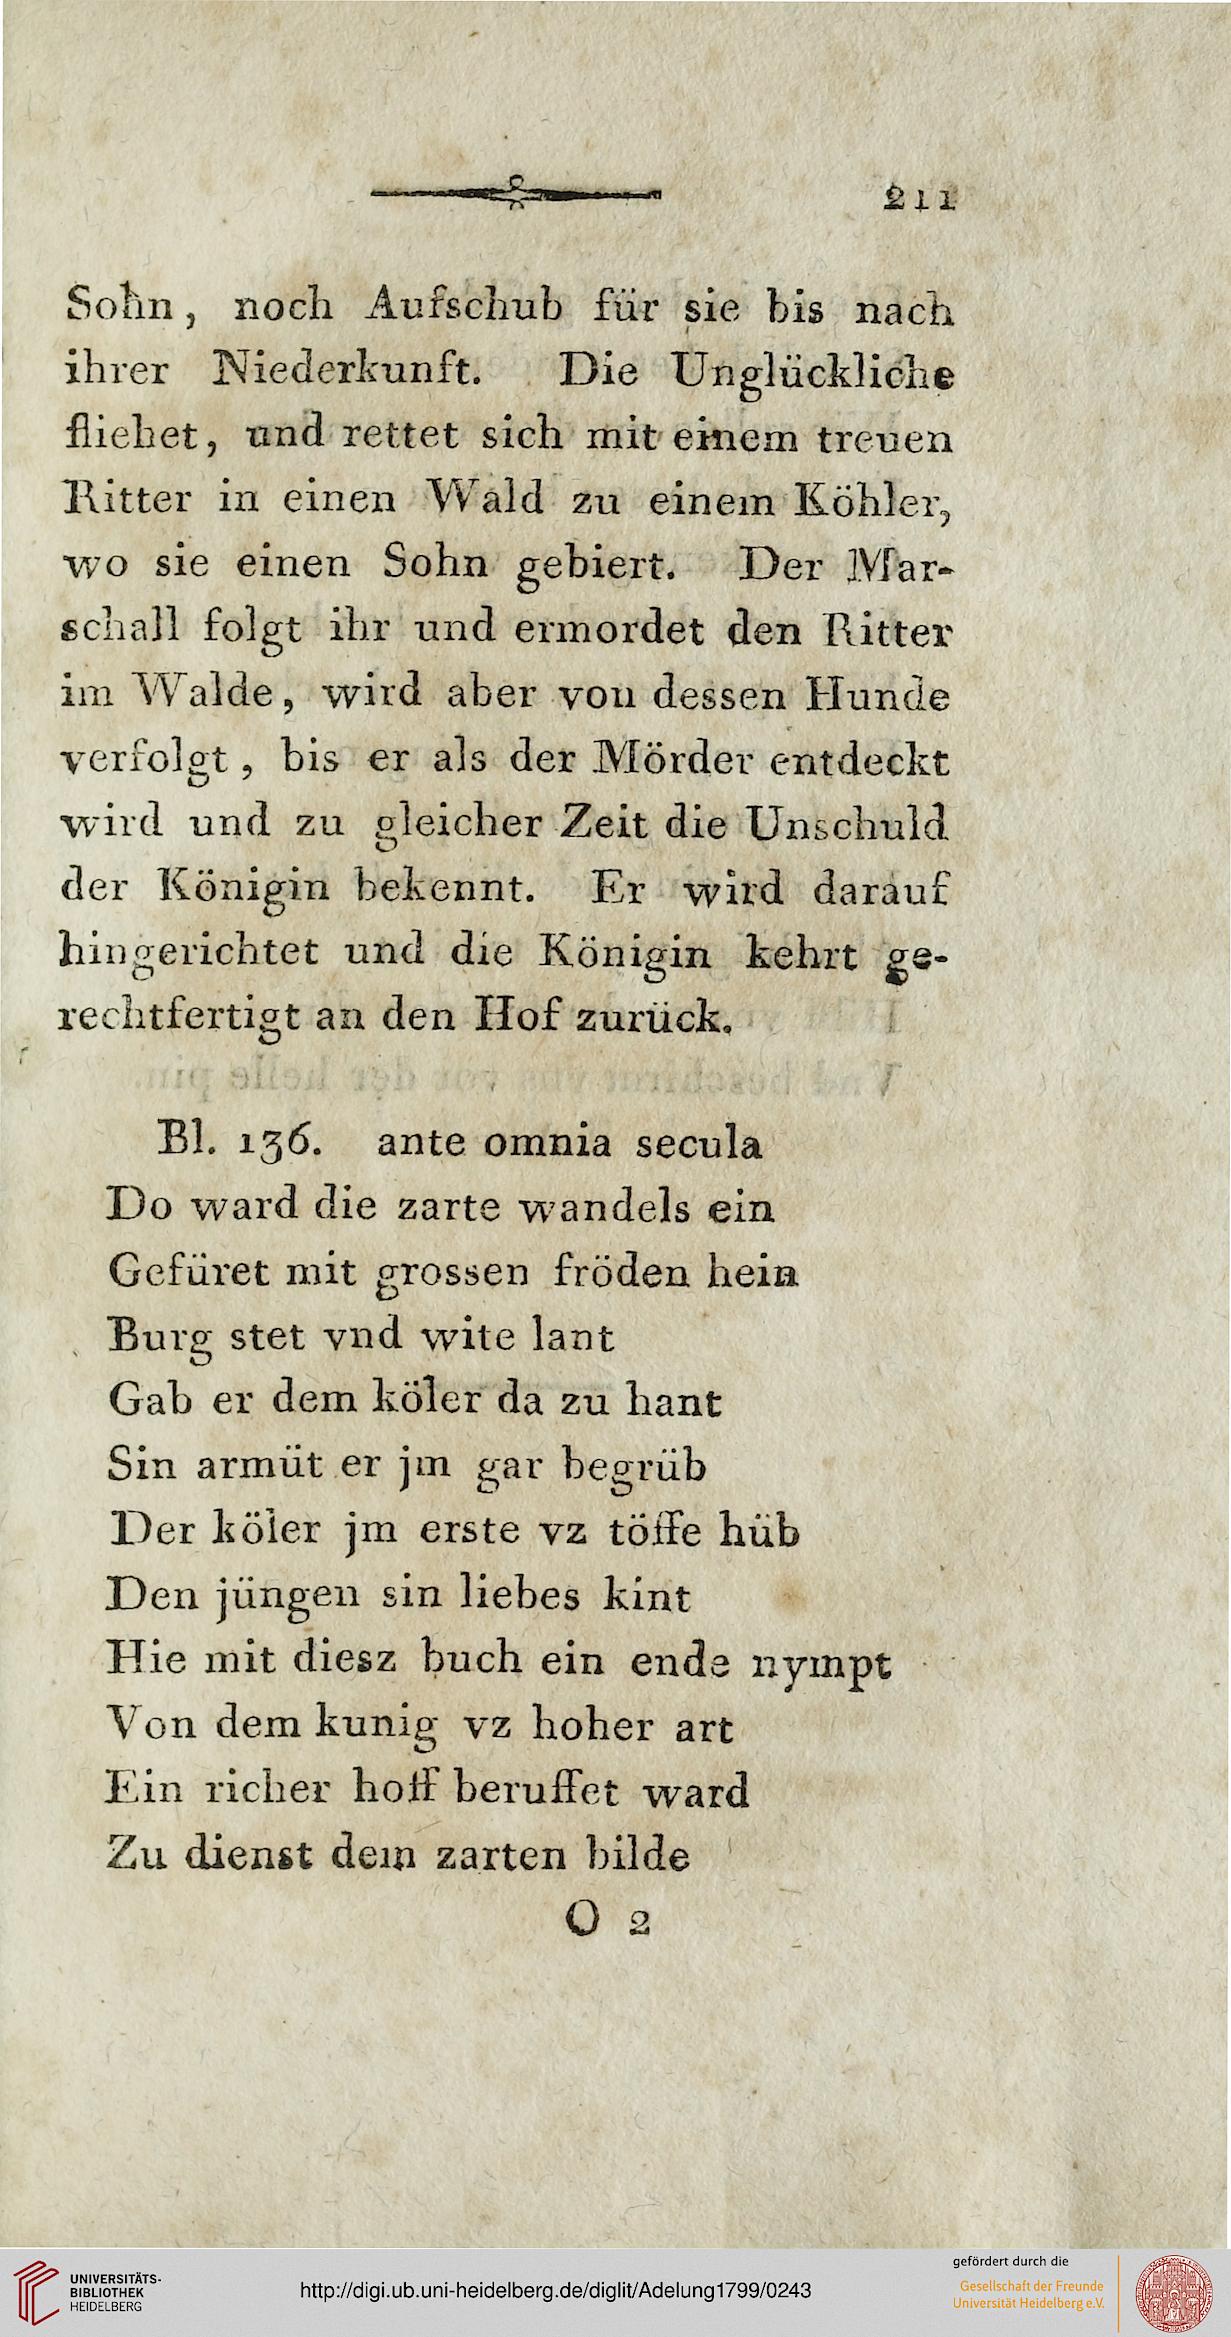 211
Sohn, noch Aufschub für sie bis nach
ihrer Niederkunft. Die Unglückliche
fliehet, und rettet sich mit einem treuen
Ritter in einen Wald zu einem Köhler,
wo sie einen Sohn gebiert. Der Mar-
schall folgt ihr und ermordet den Ritter
im Walde, wird aber von dessen Hunde
verfolgt, bis er als der Mörder entdeckt
wird und zu gleicher Zeit die Unschuld
der Königin bekennt. Er wird darauf
hingerichtet und die Königin kehrt ge-
rechtfertigt an den Hof zurück.
Bl. 136. ante omnia secula
Do ward die zarte wandels ein
Gefüret mit grossen fröden hein
Burg stet vnd wite lant
Gab er dem köler da zu hant
Sin armüt er jm gar begrüb
Der köler jm erste vz töffe hüb
Den jüngen sin liebes kint
Hie mit diesz buch ein ende nympt
Von dem kunig vz hoher art
Ein richer hoff beruffet ward
Zu dienst dem zarten bilde
O 2
UNIVERSITÄTS-
BIBLIOTHEK
HEIDELBERG
http://digi.ub.uni-heidelberg.de/diglit/Adelung1799/0243
gefördert durch die
Gesellschaft der Freunde
Universität Heidelberg e.V.